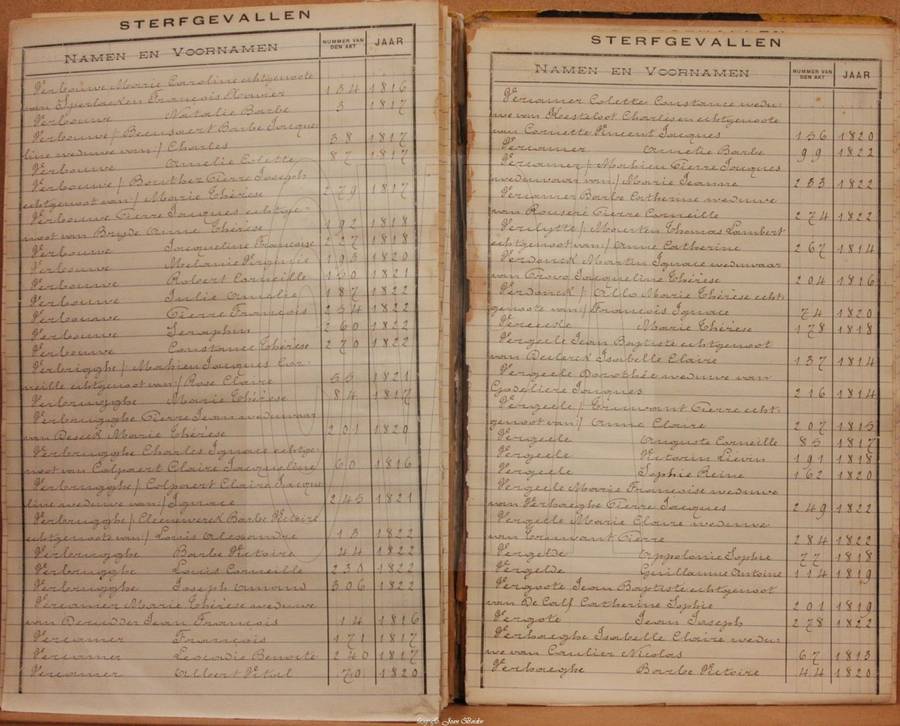 STERFGEVALLEN
NAMEN EN VOORNAMEN NUMMER VAN DEN AKT JAAR
Verbouwe Marie Caroline echtgenoote
van Sperlaeken François Xavier 134 1816
Verbouwe Natalie Barbe 3 1817
Verbouwe / Beernaert Barbe Jacque
line weduwe van / Charles 38 1817
Verbouwe Amelie Colette 87 1817
Verbouwe / Bouthez Pierre Joseph
echtgenoot van / Marie Thérèse 279 1817
Verbouwe Pierre Jacques echtge-
noot van Bryde Anne Thérèse 192 1818
Verbouwe Jacqueline Françoise 227 1818
Verbouwe Melanie Virginie 193 1820
Verbouwe Robert Corneille 150 1821
Verbouwe Julie Amelie 187 1822
Verbouwe Pierre François 254 1822
Verbouwe Seraphin 260 1822
Verbouwe Constance Thérèse 270 1822
Verbrigghe / Mahieu Jacques Cor-
neille echtgenoot van / Rose Claire 53 1821
Verbrugghe Marie Thérèse 84 1817
Verbrugghe Pierre Jean weduwaar
van Deseck Marie Thérèse 201 1820
Verbrugghe Charles Ignace echtge-
noot van Colpaert Claire Jacqueline 60 1816
Verbrugghe / Colpaert Claire Jacque
line weduwe van / Ignace 245 1821
Verbrugghe / Cleenewerck Barbe Victoire
echtgenoote van / Louis Alexandre 13 1822
Verbrugghe Barbe Victoire 44 1822
Verbrugghe Louis Corneille 230 1822
Verbrugghe Joseph Amand 306 1822
Vercamer Marie Thérèse weduwe
van Deridder Jean François 14 1816
Vercamer François 171 1817
Vercamer Leocadie Benoite 240 1817
Vercamer Albert Vital 70 1820
STERFGEVALLEN
NAMEN EN VOORNAMEN NUMMER VAN DEN AKT JAAR
Vercamer Colette Constance wedu
we van Hoesteloot Charles en echtgenoote
van Cornette Vincent Jacques 156 1820
Vercamer Amelie Barbe 99 1822
Vercamer / Mahieu Pierre Jacques
weduwaar van / Marie Jeanne 233 1822
Vercamer Barbe Catherine weduwe
van Rousere Pierre Corneille 274 1822
Verclytte / Mourten Thomas Lambert
echtgenoot van / Anne Catherine 267 1814
Verdonck Martin Ignace weduwaar
van Provo Jacqueline Thérèse 204 1816
Verdonck / Allo Marie Thérèse echt-
genoote van / François Ignace 74 1820
Marie Thérèse 178 1818
Vergeele Jean Baptiste echtgenoot
van Declerck Isabelle Claire 137 1814
Vergeele Dorothée weduwe van
Gaseliere Jacques 216 1814
Vergeele / Truwant Pierre echt-
genoot van / Anne Claire 207 1815
Vergeele Auguste Corneille 85 1817
Vergeele Victorin Lievin 191 1818
Vergeele Sophie Reine 162 1820
Vergeele Marie Françoise weduwe
van Verhaeghe Pierre Jacques 249 1822
Vergelle Marie Claire weduwe
van Truwant Pierre 284 1822
Vergelde Appolonie Sophie 77 1818
Vergelde Guillaume Antoine 114 1819
Vergoote Jean Baptiste echtgenoot
van De Calf Catherine Sophie 201 1819
Vergote Jean Joseph 278 1822
Verhaeghe Isabelle Claire wedu
we van Caulier Nicolas 67 1813
Verhaeghe Barbe Victoire 44 1820